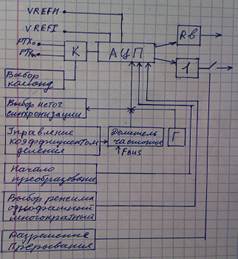 VREFH
VREFL
PTX₀
PTX₇
К
АЦП
Rв
1
Выбор
команд
Выбор источ.
синхронизации
Управление
коэффициентом
деления
Делитель
частоты
Г
FBUS
Начало
преобразования
Выбор режима
однократный
многократный
Разрешение
прерывания